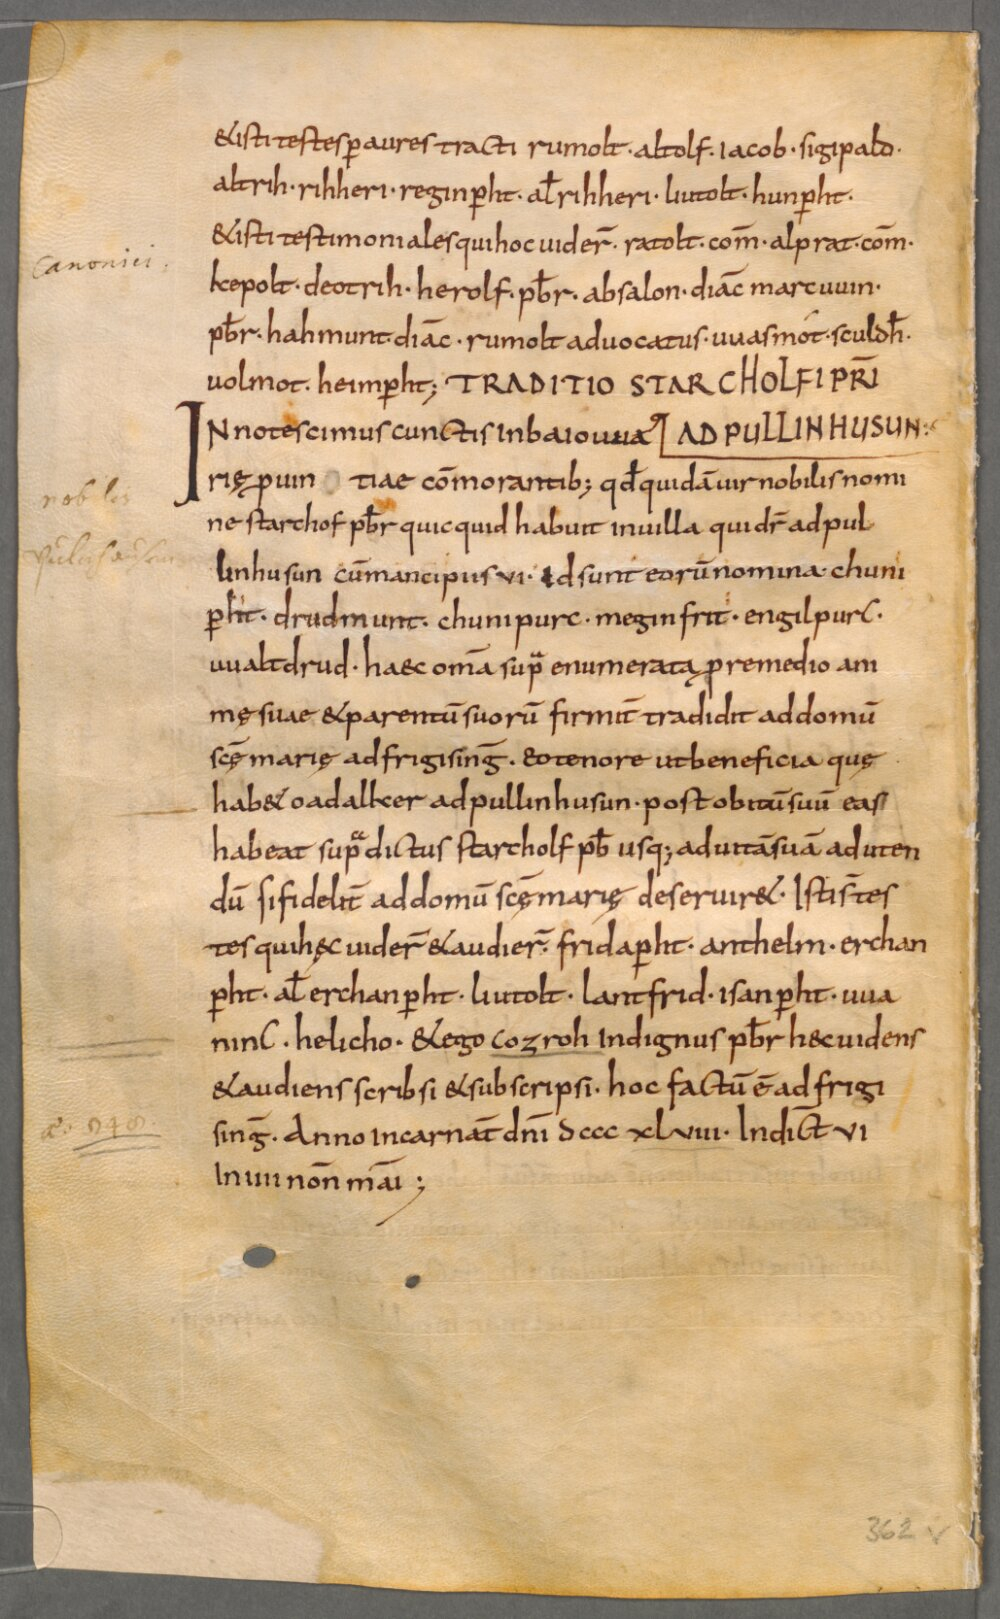 &isti testes p̄ aures tracti rumolt · altolf · iacob · sigipald ·
altrih · rihheri · reginp̄ht · al̄ rihheri · liutolt · hunp̄ht ·
&isti testimoniales qui hoc uider̄ · ratolt · com̄ · alprat · com̄ ·
canonici
kepolt · deotrih · herolf · pb̄r · absalon · diac̄ marcuuin ·
pb̄r · hahmunt · diac̄ · rumolt aduocatus · uuasmot · sculdh̄ ·
uolmot · heimp̄ht ; TRADITIO STARCHOLFI PR̄I
IN notescimus cunctis in baiouua AD PULLINHUSUN :
rię puin tiae com̄morantib; qd̄ quidā uir nobilis nomi
nobiles
ne starchof pb̄r quicquid habuit in uilla qui dr̄ ad pul
linhusun cū mancipiis vi · id sunt eorū nomina · chuni
p̄ht · drudmunt · chunipurc · meginfrit · engilpurc ·
uualtdrud · ha&c om̄a sup̄ enumerata p remedio ani
mę suae & parentū suorū firmit̄ tradidit ad domū
scę̄ marię ad frigising̅ · eo tenore ut beneficia quę
hab& oadalker ad pullinhusun · post obitū suū eas
habeat sup̄dictus starcholf pb̄ usq; ad uitā suā ad uten
dū si fidelit̄ ad domū scę̄ marię deseruir& · Isti s̄ tes
tes qui hęc uider̄ & audier̄ · fridap̄ht · anthelm · erchan
p̄ht · al̄ erchanp̄ht · liutolt · lantfrid · isanp̄ht · uua
ninc · helicho · & ego cozroh indignus pb̄r h&c uidens
& audiens scribsi & subscripsi · hoc factū ē ad frigi
sing̅ · Anno incarnat̄ dn̄i dccc xlviii · Indict̄ vi
In iiii non̄ mai ;
362 v